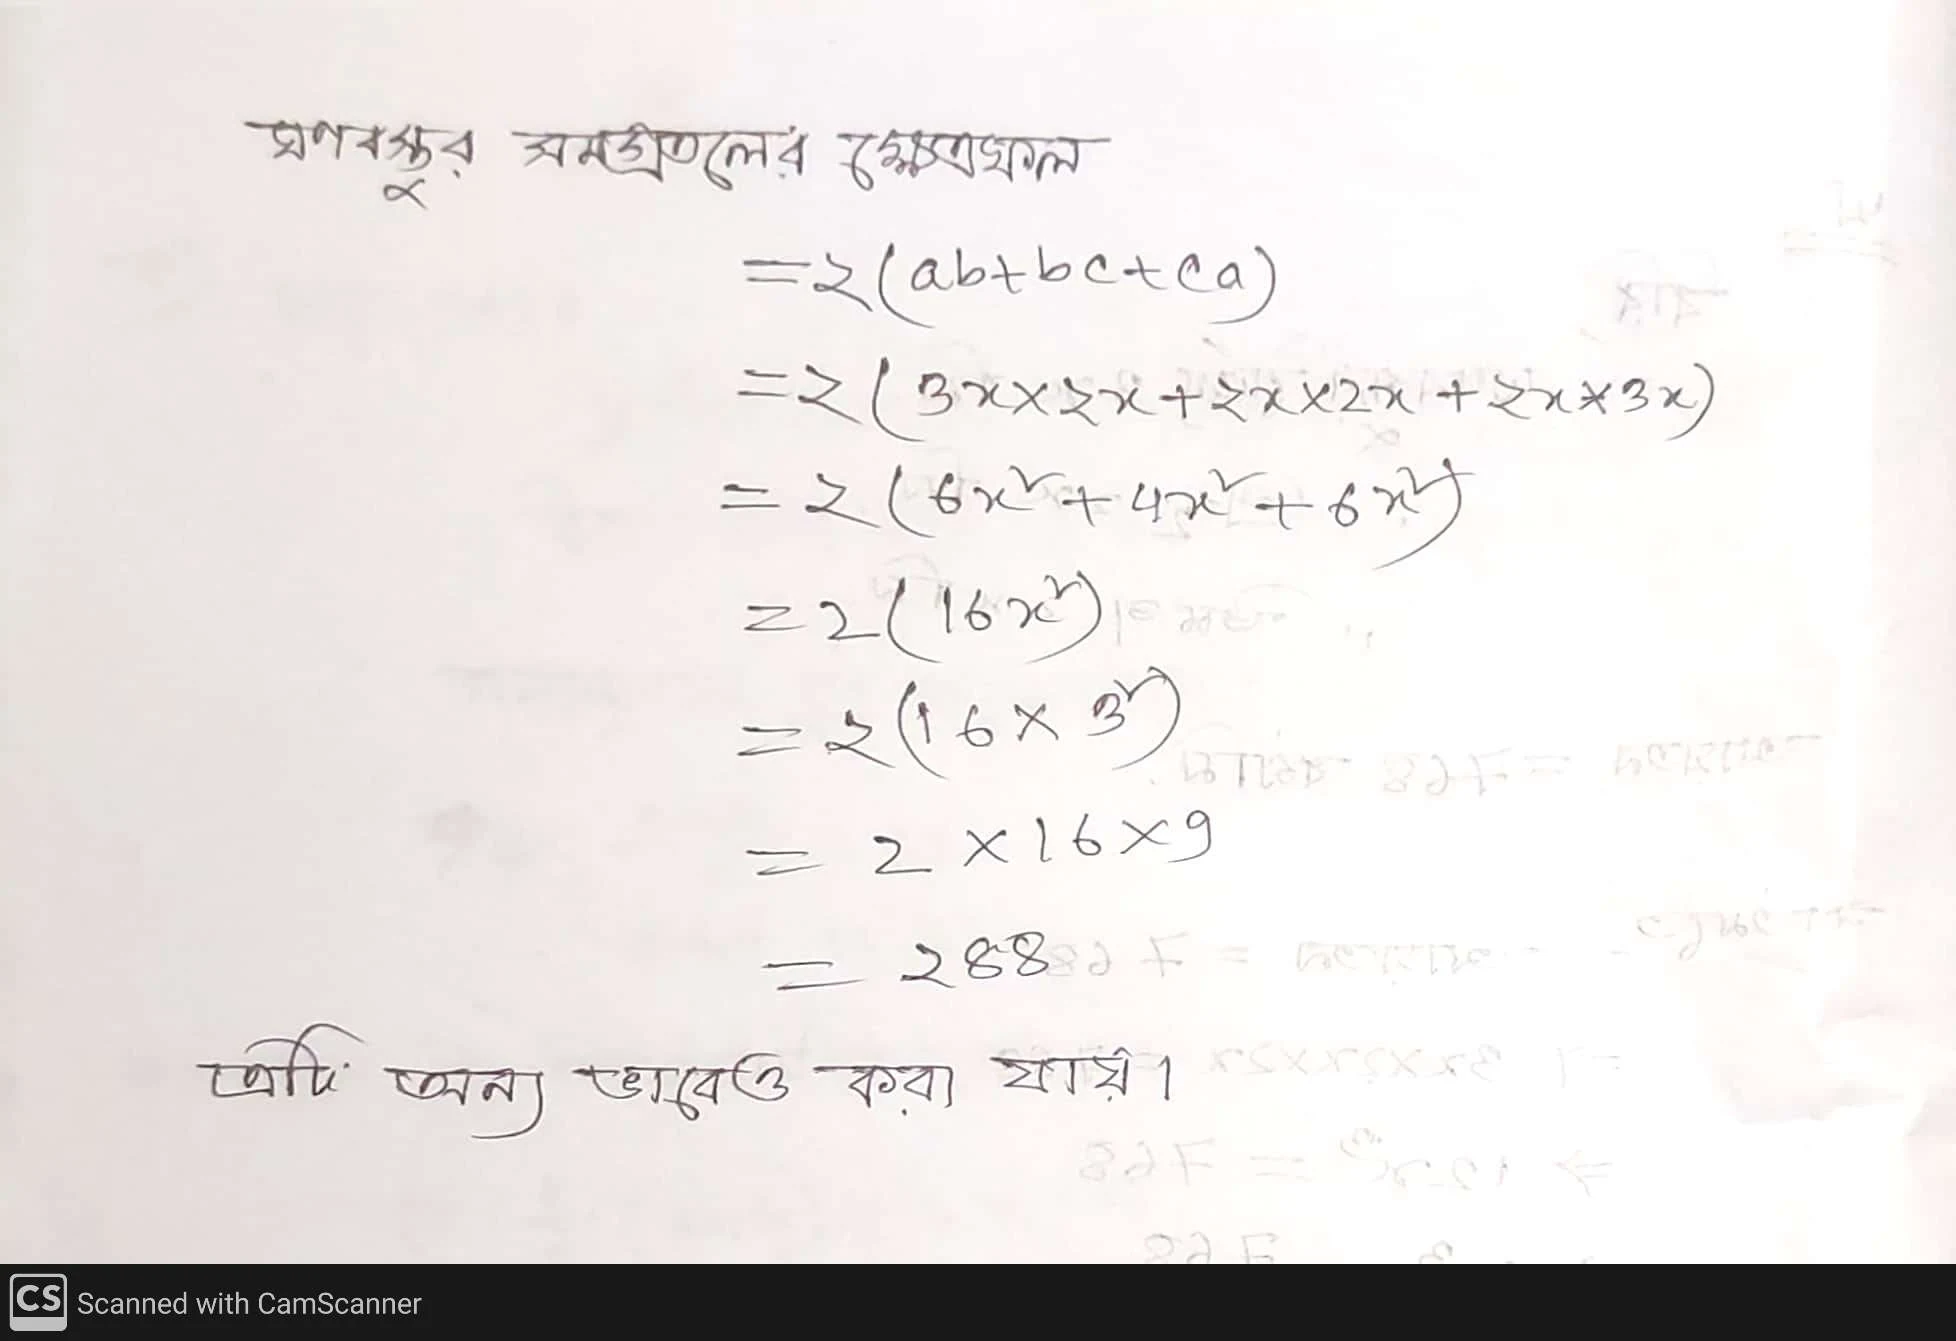 ঘণবস্তুর সমগ্রতলের ক্ষেত্রফল
=2(ab+bc+ca)
=2(3x×2x+2x×2x+2x×3x)
=2(6x²+4x²+6x²)
=2(16x²)
=2(16×3²)
=2×16×9
=288
এটি অন্য ভাবেও করা যায়।
CS Scanned with CamScanner